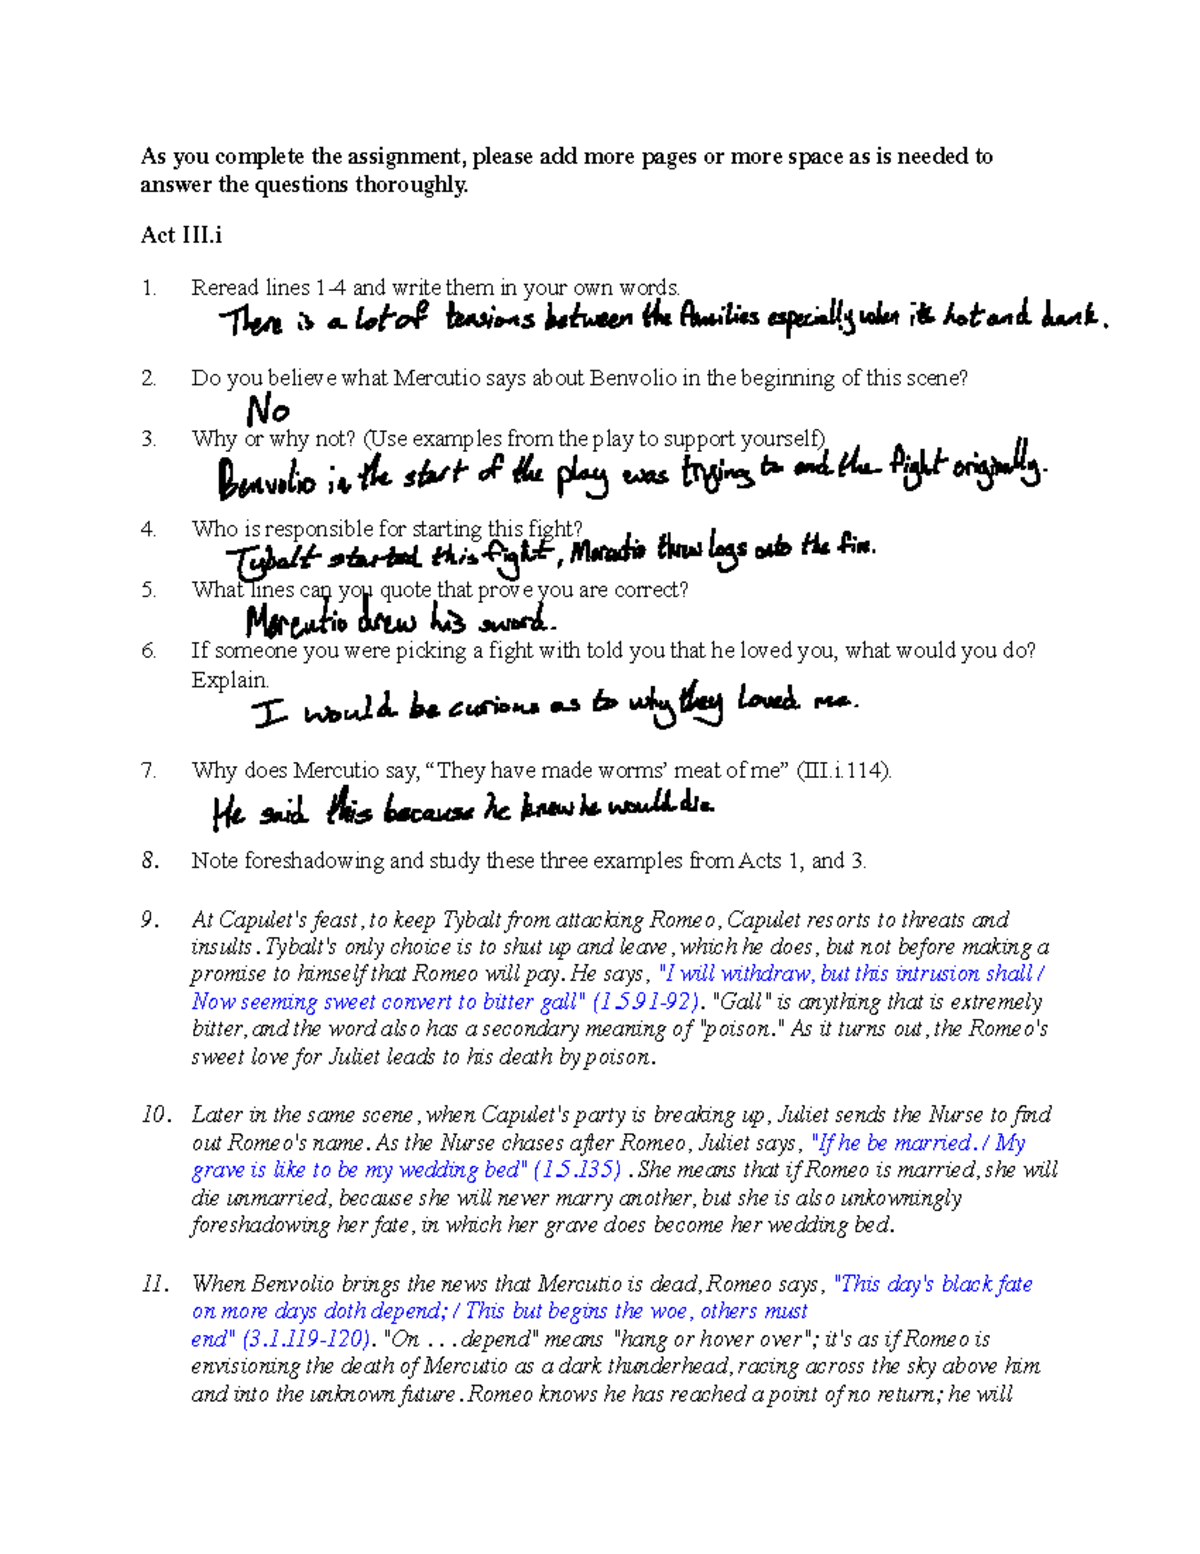 As you complete the assignment, please add more pages or more space as is needed to
answer the questions thoroughly.
Act III.i
1. Reread lines 1-4 and write them in your own words.
There is a lot of tensions between the families especially when it's hot and dank.
2. Do you believe what Mercutio says about Benvolio in the beginning of this scene?
No
3. Why or why not? (Use examples from the play to support yourself)
Benvolio in the start of the play was trying to end the fight originally.
4. Who is responsible for starting this fight?
Tybalt started this fight, Mercutio threw logs onto the fire.
5. What lines can you quote that prove you are correct?
Mercutio drew his sword.
6. If someone you were picking a fight with told you that he loved you, what would you do?
Explain.
I would be curious as to why they loved me.
7. Why does Mercutio say, “They have made worms’ meat of me” (III.i.114).
He said this because he knew he would die.
8. Note foreshadowing and study these three examples from Acts 1, and 3.
9. At Capulet's feast, to keep Tybalt from attacking Romeo, Capulet resorts to threats and
insults. Tybalt's only choice is to shut up and leave, which he does, but not before making a
promise to himself that Romeo will pay. He says, "I will withdraw, but this intrusion shall /
Now seeming sweet convert to bitter gall" (1.5.91-92). "Gall" is anything that is extremely
bitter, and the word also has a secondary meaning of "poison." As it turns out, the Romeo's
sweet love for Juliet leads to his death by poison.
10. Later in the same scene, when Capulet's party is breaking up, Juliet sends the Nurse to find
out Romeo's name. As the Nurse chases after Romeo, Juliet says, "If he be married. / My
grave is like to be my wedding bed" (1.5.135) . She means that if Romeo is married, she will
die unmarried, because she will never marry another, but she is also unkowningly
foreshadowing her fate, in which her grave does become her wedding bed.
11. When Benvolio brings the news that Mercutio is dead, Romeo says, "This day's black fate
on more days doth depend; / This but begins the woe, others must
end" (3.1.119-120). "On . . . depend" means "hang or hover over"; it's as if Romeo is
envisioning the death of Mercutio as a dark thunderhead, racing across the sky above him
and into the unknown future. Romeo knows he has reached a point of no return; he will